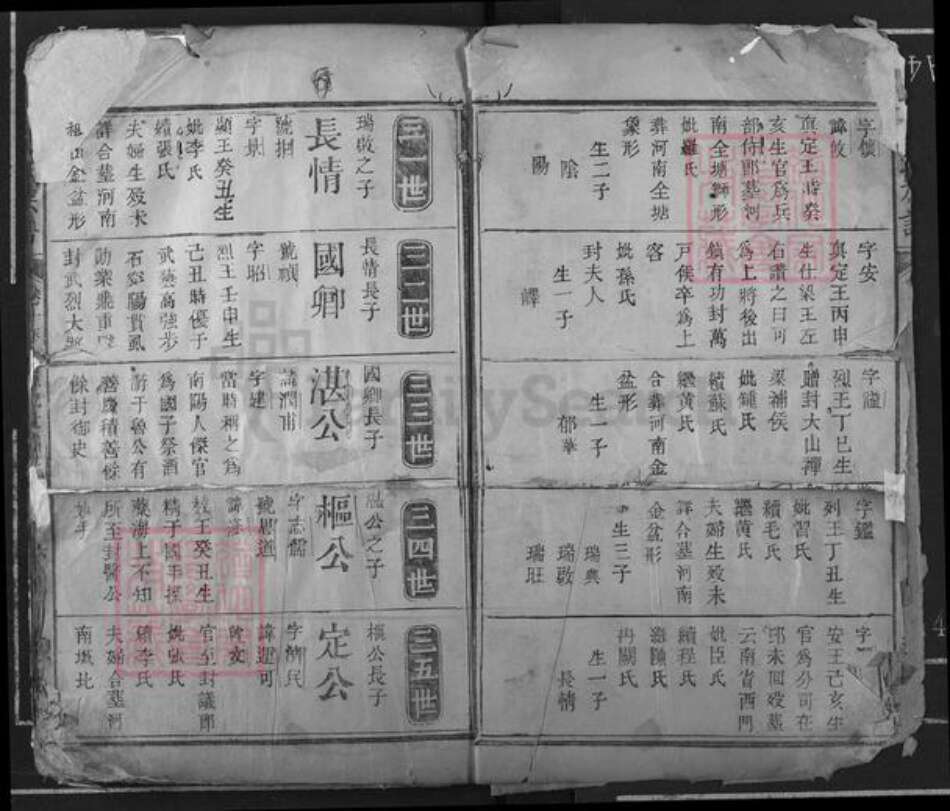 字
諱
真定王時癸
亥生官爲兵
部侍郎墓河
南全塘獅形
妣羅氏
葬河南全塘
象形
生二子
陰
陽
字安
真定王丙申
生仕梁王左
右讚之曰可
爲上將後出
鎮有功封萬
戸侯卒爲上
客
妣孫氏
封夫人
生一子
譯
字
烈王丁巳生
贈封大山禪
梁補侯
妣鍾氏
續蘇氏
繼黃氏
合葬河南金
盆形
生一子
郁華
字鑑
列王丁丑生
妣習氏
續毛氏
繼黃氏
夫婦生殁未
詳合墓河南
金盆形
生三子
瑞典
瑞敬
瑞旺
字
安王己亥生
官爲分司在
邱未回殁墓
云南省西門
妣臣氏
續程氏
繼顔氏
冉關氏
生一子
長情
三一世
瑞敬之子
長情
號
字
顯王癸丑生
妣李氏
續張氏
夫婦生殁未
詳合墓河南
祖山金盆形
三二世
長情長子
國卿
號禎
字昭
烈王壬申生
己丑時優于
武藝高強步
石穿陽貫虱
勛業飛重
封武烈大
三三世
國卿長子
湛公
諱潤甫
字建
當時稱之爲
南陽人傑官
爲國子祭酒
蔚于魯公有
善慶積善餘
餘封御史
三四世
湛公之子
樞公
字志儒
號思道
諱
王癸丑生
精于國手
藏海上不知
所至封醫公
三五世
樞公長子
定公
字濟民
諱運可
官至封議郎
妣張氏
續李氏
夫婦合墓河
南城北